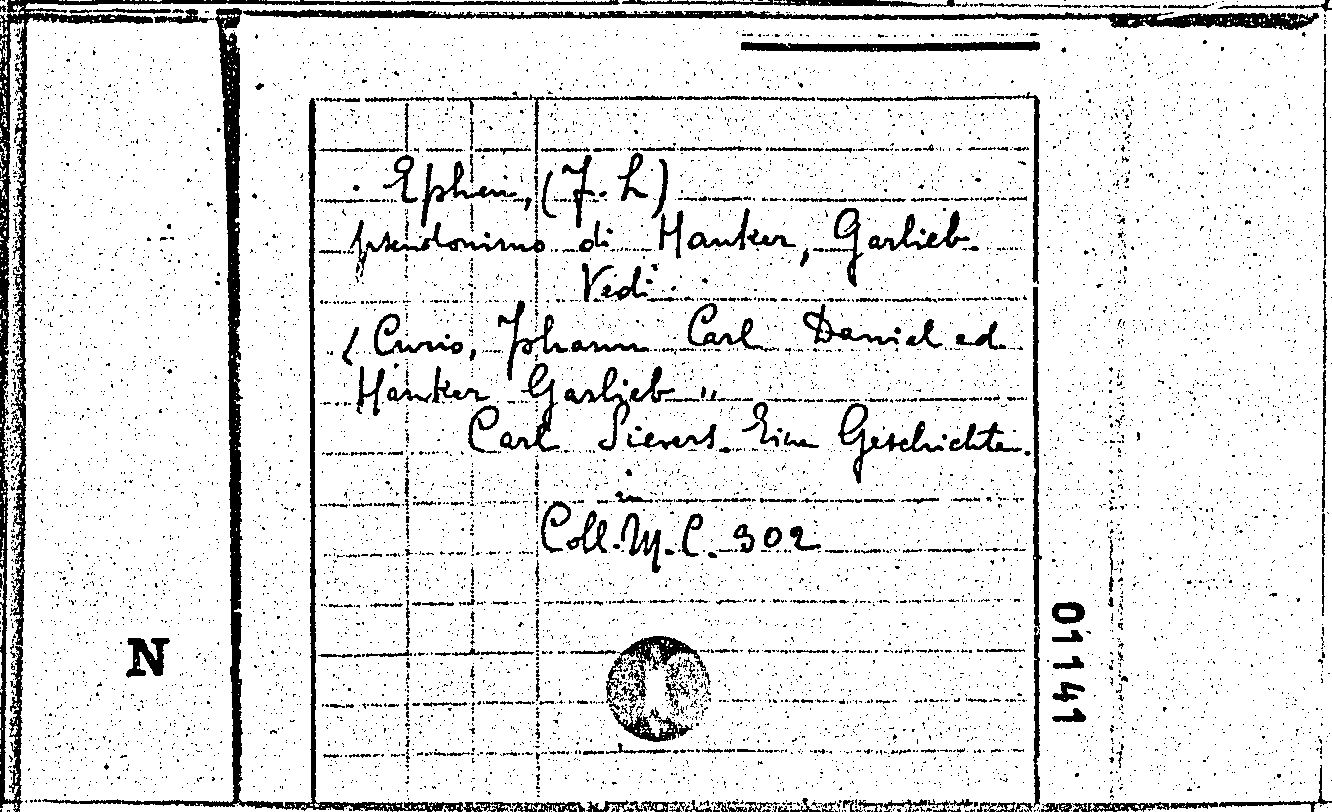 Epheu, (F. L)
pseudonimo di Hanker, Garlieb.
Vedi
(Curio, Johann Carl Daniel ed
Hanker Garlieb "
Carl Sievers. Eine Geschichte.
in
Coll. M. C. 302
N
01141